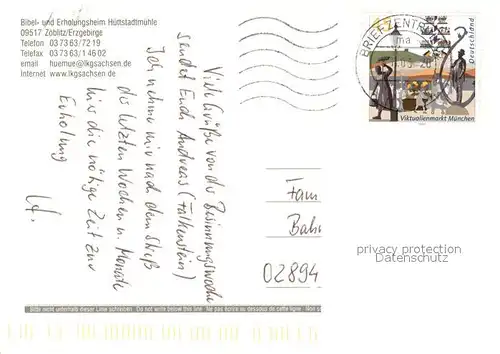 Bibel- und Erholungsheim Hüttstadtmühle
09517 Zöblitz/Erzgebirge
Telefon 03 73 63/72 19
Telefax 03 73 63/1 46 02
email huemue@lkgsachsen.de
Internet www.lkgsachsen.de
Viele Grüße von der Besinnungswoche
sendet Euch Andreas (Falkenstein)
Ich nehme mir nach dem Streß
der letzten Wochen u. Monate
hier die nötige Zeit zur
Erholung
BRIEFZENTRUM
Deutschland
Viktualienmarkt München
Fam
Bahn
02894
privacy protection
Datenschutz
Bitte nicht unterhalb dieser Linie schreiben. Do not write below this line. Ne pas écrire au dessous de cette ligne. Non s